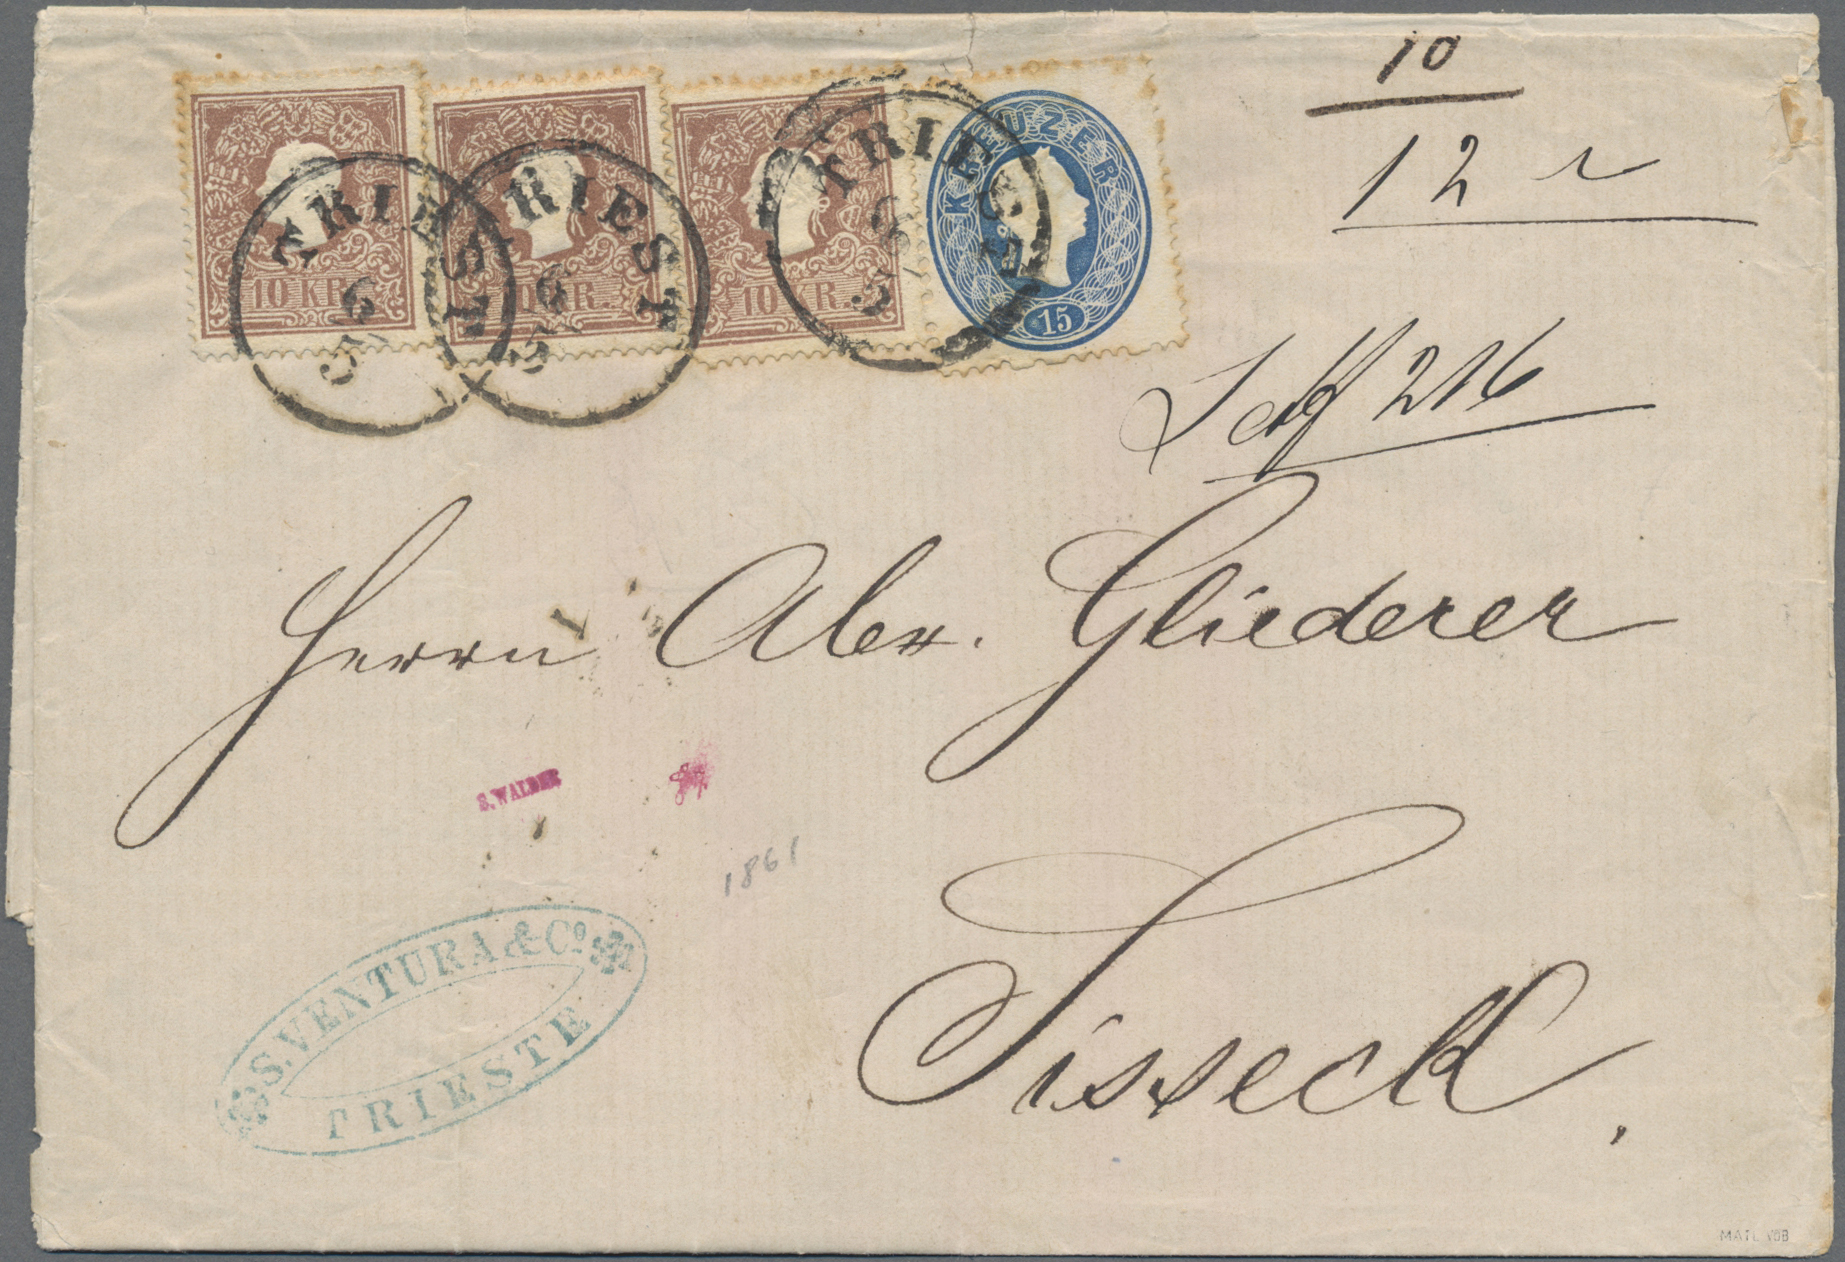 10
12
10 KR.
10 KR.
10 KR.
KREUZER
15
TRIEST
6
5
TRIEST
6
5
TRIEST
6
5
216
Herrn Alex. Gliederer
S. WALDER
1861
S. VENTURA & Cº
TRIESTE
Sisseck,